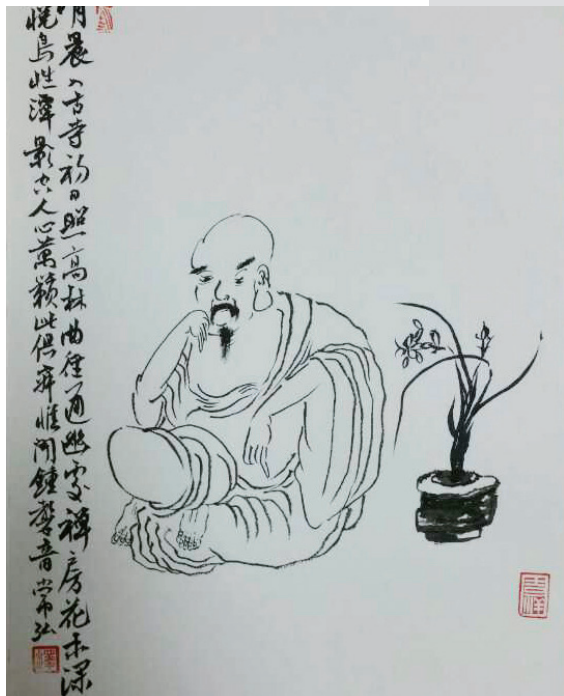 晨入古寺初日照高林曲徑通幽處禪房花木深
悅鳥性潭影空人心萬籟此俱寂惟聞鐘磬音常弘